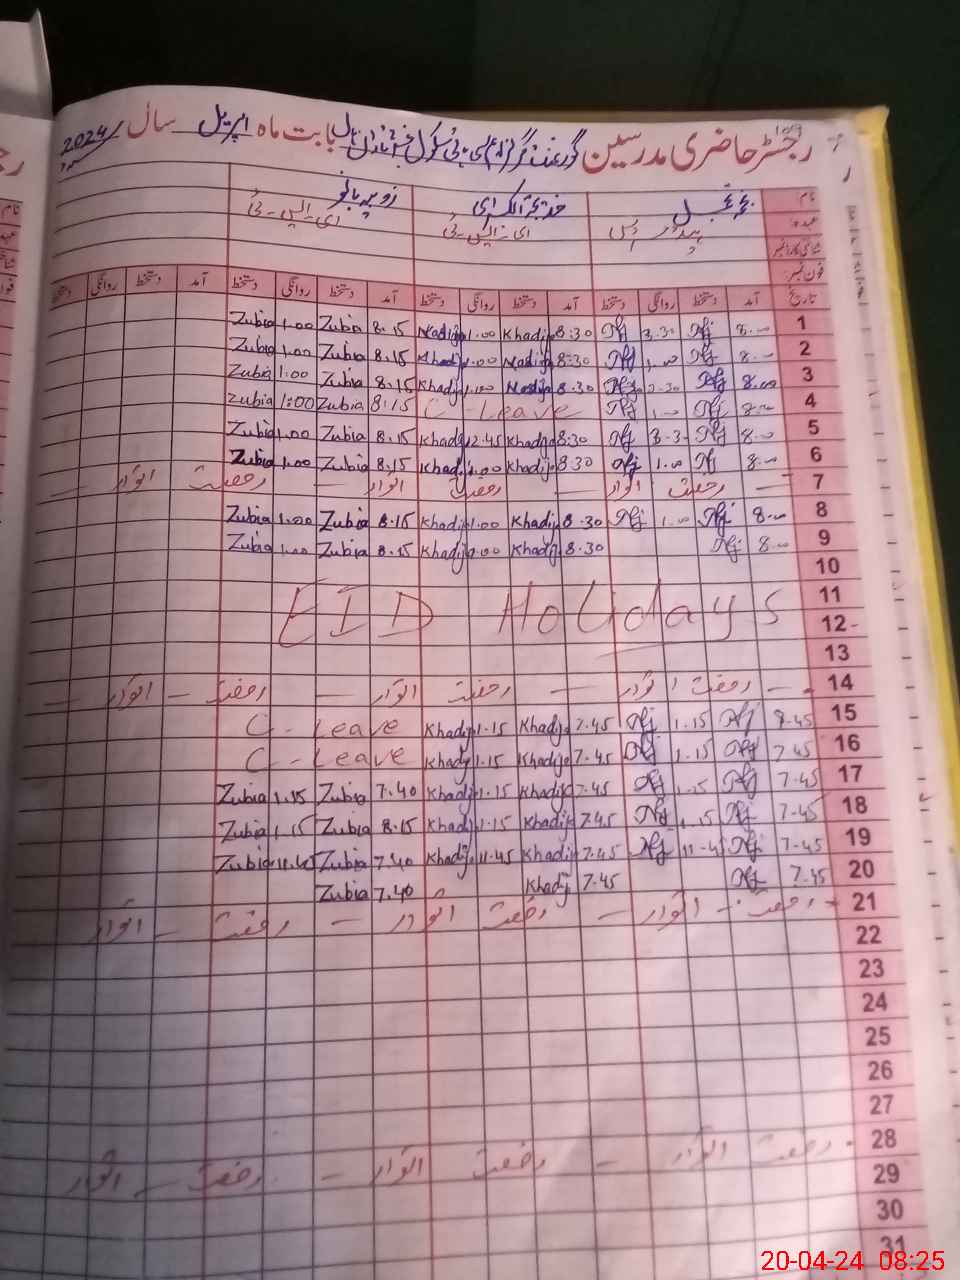 رجسٹر حاضری مدرسین گورنمنٹ گرلز سکول بابت ماہ اپریل سال 2024
نام خدیجۃ الکبرٰی زوبیہ بانو
عہدہ ای۔ایس۔ٹی ای۔ایس۔ٹی
شناختی کارڈ نمبر
فون نمبر:
تاریخ آمد دستخط روانگی دستخط آمد دستخط روانگی دستخط آمد دستخط روانگی دستخط آمد دستخط روانگی دستخط
Zubia 1.00 Zubia 8.15 Khadija 1.00 Khadij 8:30 3.30 8.00 1
Zubia 1.00 Zubia 8.15 Khadij 1.00 Khadija 8:30 1.00 8.00 2
Zubia 1.00 Zubia 8.15 Khadij 1.00 Khadija 8.30 2.30 8.00 3
Zubia 1:00 Zubia 8:15 C - Leave 1.00 8.00 4
Zubia 1.00 Zubia 8.15 Khadij 12.45 Khadija 8:30 3.3 8.00 5
Zubia 1.00 Zubia 8.15 Khadij 1.00 Khadij 8.30 1.00 8.00 6
رخصت اتوار — رخصت اتوار — رخصت اتوار — 7
Zubia 1.00 Zubia 8.15 Khadij 1.00 Khadij 8.30 1.00 8.00 8
Zubia 1.00 Zubia 8.15 Khadij 1.00 Khadij 8.30 8.00 9
10
11
EID Holidays 12
13
رخصت اتوار — رخصت اتوار — رخصت — اتوار — 14
C - Leave Khadij 1.15 Khadij 7.45 1.15 8.45 15
C - Leave Khadij 1.15 Khadij 7.45 1.15 7.45 16
Zubia 1.15 Zubia 7.40 Khadij 1.15 Khadij 7.45 1.15 7.45 17
Zubia 1.15 Zubia 8.15 Khadij 1.15 Khadij 7.45 1.15 7.45 18
Zubia 11.45 Zubia 7.40 Khadij 11.45 Khadij 7.45 11.45 7.45 19
Zubia 7.40 Khadij 7.45 7.45 20
رخصت اتوار — رخصت اتوار — رخصت — اتوار 21
22
23
24
25
26
27
رخصت اتوار — رخصت اتوار — رخصت — اتوار 28
29
30
31
20-04-24 08:25